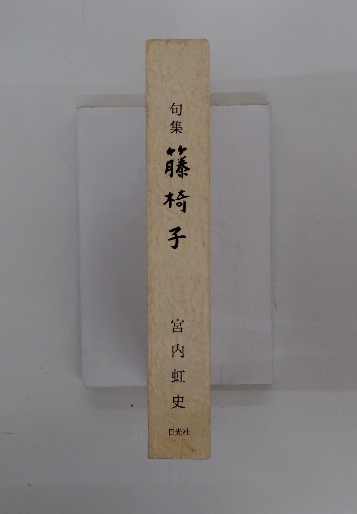 句集
籐椅子
宮内虹史
日光社